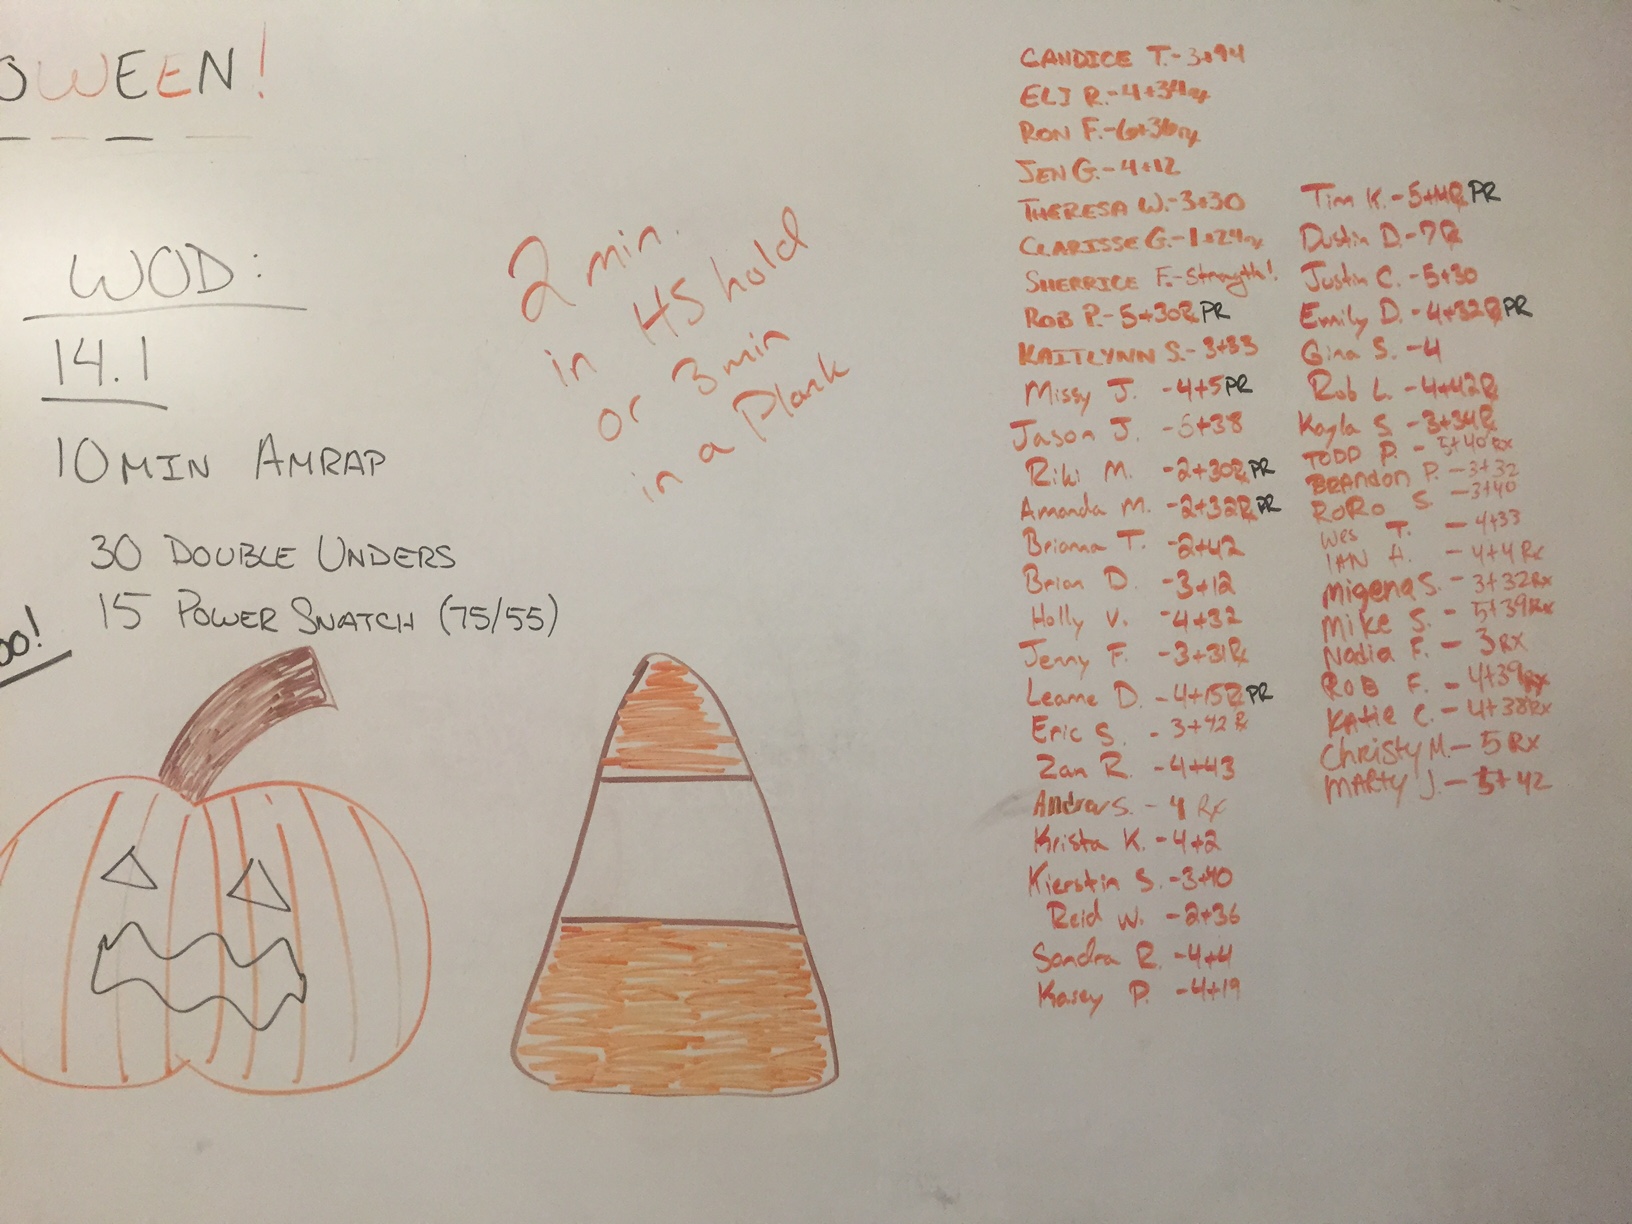 OWEEN!
WOD:
14.1
10 MIN AMRAP
30 DOUBLE UNDERS
15 POWER SNATCH (75/55)
oo!
2 min.
in HS hold
or 3 min
in a Plank
CANDICE T. - 3+94
ELI R. - 4+34
RON F. - 6+36
JEN G. - 4+12
THERESA W. - 3+30
CLARISSE G. - 1+24
SHERRICE F. - Strength!
ROB P. - 5+30R PR
KAITLYNN S. - 3+33
Missy J. - 4+5 PR
Jason J. - 5+38
Riki M. - 2+30R PR
Amanda M. - 2+32R PR
Brianna T. - 2+42
Brian D. - 3+12
Holly V. - 4+32
Jenny F. - 3+31Rx
Leanne D. - 4+15R PR
Eric S. - 3+42 R
Zan R. - 4+43
S. - 4 Rx
Krista K. - 4+2
Kierstin S. - 3+40
Reid W. - 2+36
Sandra R. - 4+4
Kasey P. - 4+19
Tim K. - 5+4 PR
Dustin D. - 7R
Justin C. - 5+30
Emily D. - 4+32R PR
Gina S. - 4
Rob L. - 4+42R
Kayla S. - 3+34R
TODD P. - 5+40 Rx
BRANDON P. - 3+32
RORO S. - 3+40
WES T. - 4+33
IAN A. - 4+4 Rx
Migena S. - 3+32Rx
MIKE S. - 5+39Rx
Nadia F. - 3 RX
ROB F. - 4+39Rx
KATIE C. - 4+38Rx
Christy M. - 5 RX
MARTY J. - 5+42